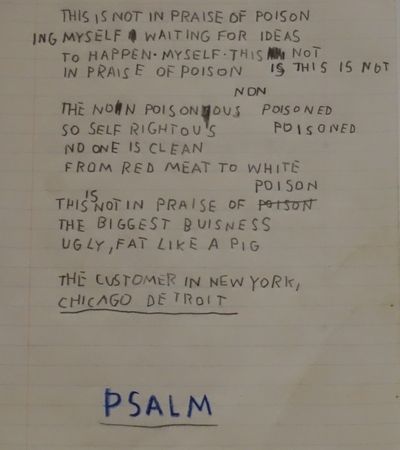 THIS IS NOT IN PRAISE OF POISON
ING MYSELF WAITING FOR IDEAS
TO HAPPEN. MYSELF. THIS NOT
IN PRAISE OF POISON IS THIS IS NOT
NON
THE NON POISONOUS POISONED
SO SELF RIGHTOUS POISONED
NO ONE IS CLEAN
FROM RED MEAT TO WHITE
POISON
IS
THIS NOT IN PRAISE OF POISON
THE BIGGEST BUISNESS
UGLY, FAT LIKE A PIG
THE CUSTOMER IN NEW YORK,
CHICAGO DETROIT
PSALM